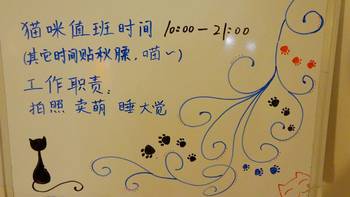 猫咪值班时间 10:00—21:00
(其它时间贴秋膘,喵~)
工作职责:
拍照 卖萌 睡大觉